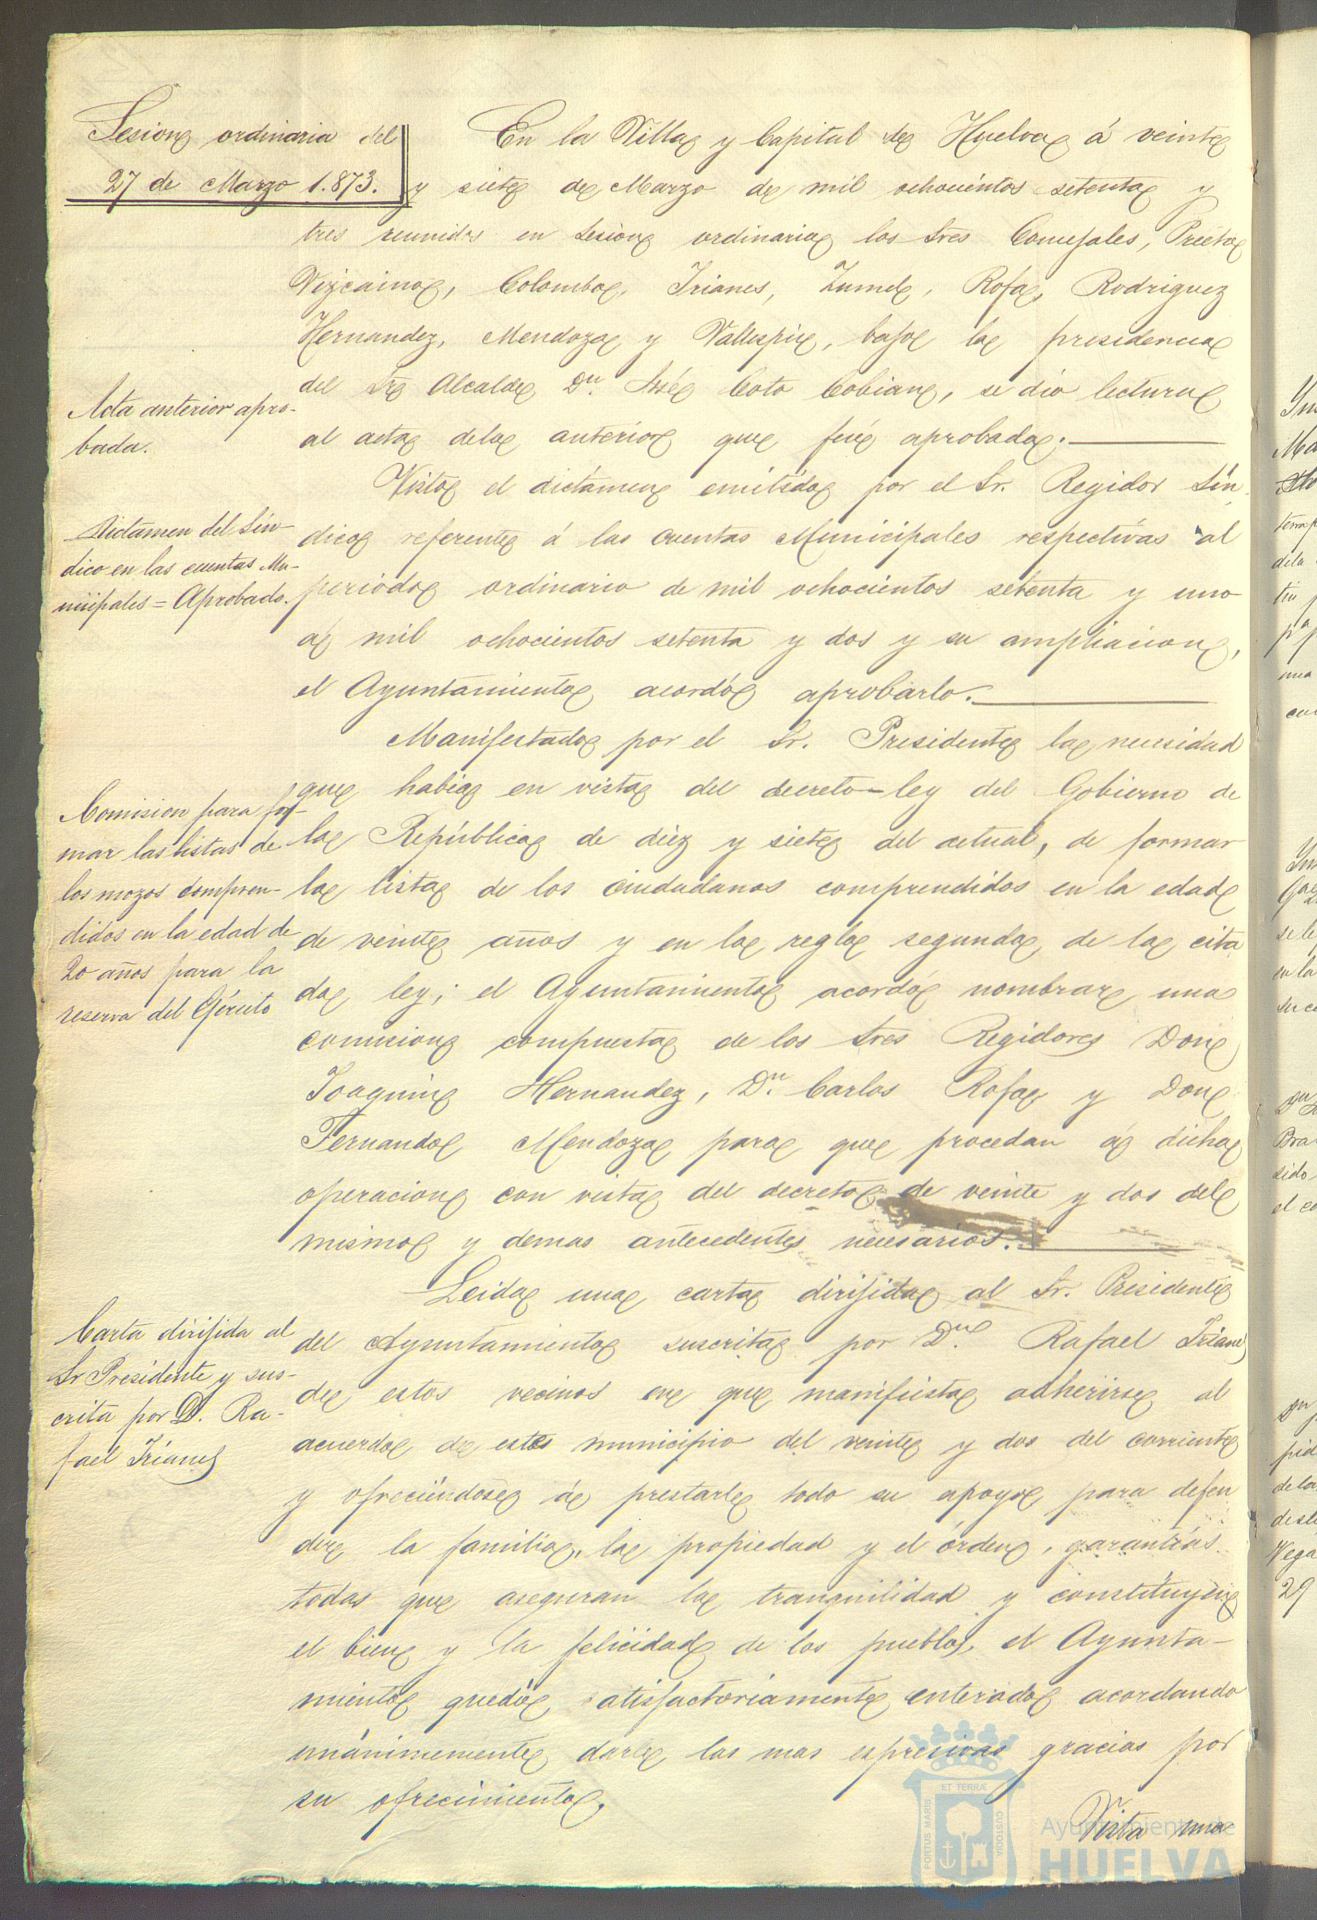 Sesion ordinaria del
27 de Marzo 1.873.
En la Villa y Capital de Huelva á veinte
y siete de Marzo de mil ochocientos setenta y
tres reunidos en Sesion ordinaria los Sres Concejales, Prieto
Vizcaino, Colombo, Trianes, Zumel, Rofa, Rodriguez
Hernandez, Mendoza y Vallespin, bajo la presidencia
del Sr Alcalde Dn. José Coto Cobian, se dió lectura
al acta dela anterior que fué aprobada.
Acta anterior apro-
bada.
Visto el dictámen emitido por el Sr. Regidor Sín-
dico referente á las cuentas Municipales respectivas al
periodo ordinario de mil ochocientos setenta y uno
á mil ochocientos setenta y dos y su ampliacion,
el Ayuntamiento acordó aprobarlo.
Dictamen del Sín-
dico en las cuentas Mu-
nicipales = Aprobado.
Manifestado por el Sr. Presidente la necesidad
que habia en vista del decreto-ley del Gobierno de
la República de diez y siete del actual, de formar
la lista de los ciudadanos comprendidos en la edad
de veinte años y en la regla segunda de la cita
da ley; el Ayuntamiento acordó nombrar una
comision compuesta de los Sres Regidores Don
Joaquin Hernandez, Dn. Carlos Rofa y Don
Fernando Mendoza para que procedan á dicha
operacion con vista del decreto de veinte y dos del
mismo y demas antecedentes necesarios.
Comision para for-
mar las listas de
los mozos compren-
didos en la edad de
20 años para la
reserva del Ejército
Leida una carta dirijida al Sr. Presidente
del Ayuntamiento suscrita por Dn. Rafael Trianes
de estos vecinos en que manifiesta adherirse al
acuerdo de este municipio del veinte y dos del corriente
y ofreciéndose á prestarle todo su apoyo para defen
der la familia, la propiedad y el órden, garantías
todas que aseguran la tranquilidad y constituyen
el bien y la felicidad de los pueblos, el Ayunta-
miento quedó satisfactoriamente enterado acordando
unánimemente darle las mas espresivas gracias por
su ofrecimiento.
Carta dirijida al
Sr Presidente y sus-
crita por D. Ra-
fael Trianes
Vista una
PORTUS MARIS ET TERRÆ CUSTODIA
Ayuntamiento de
HUELVA